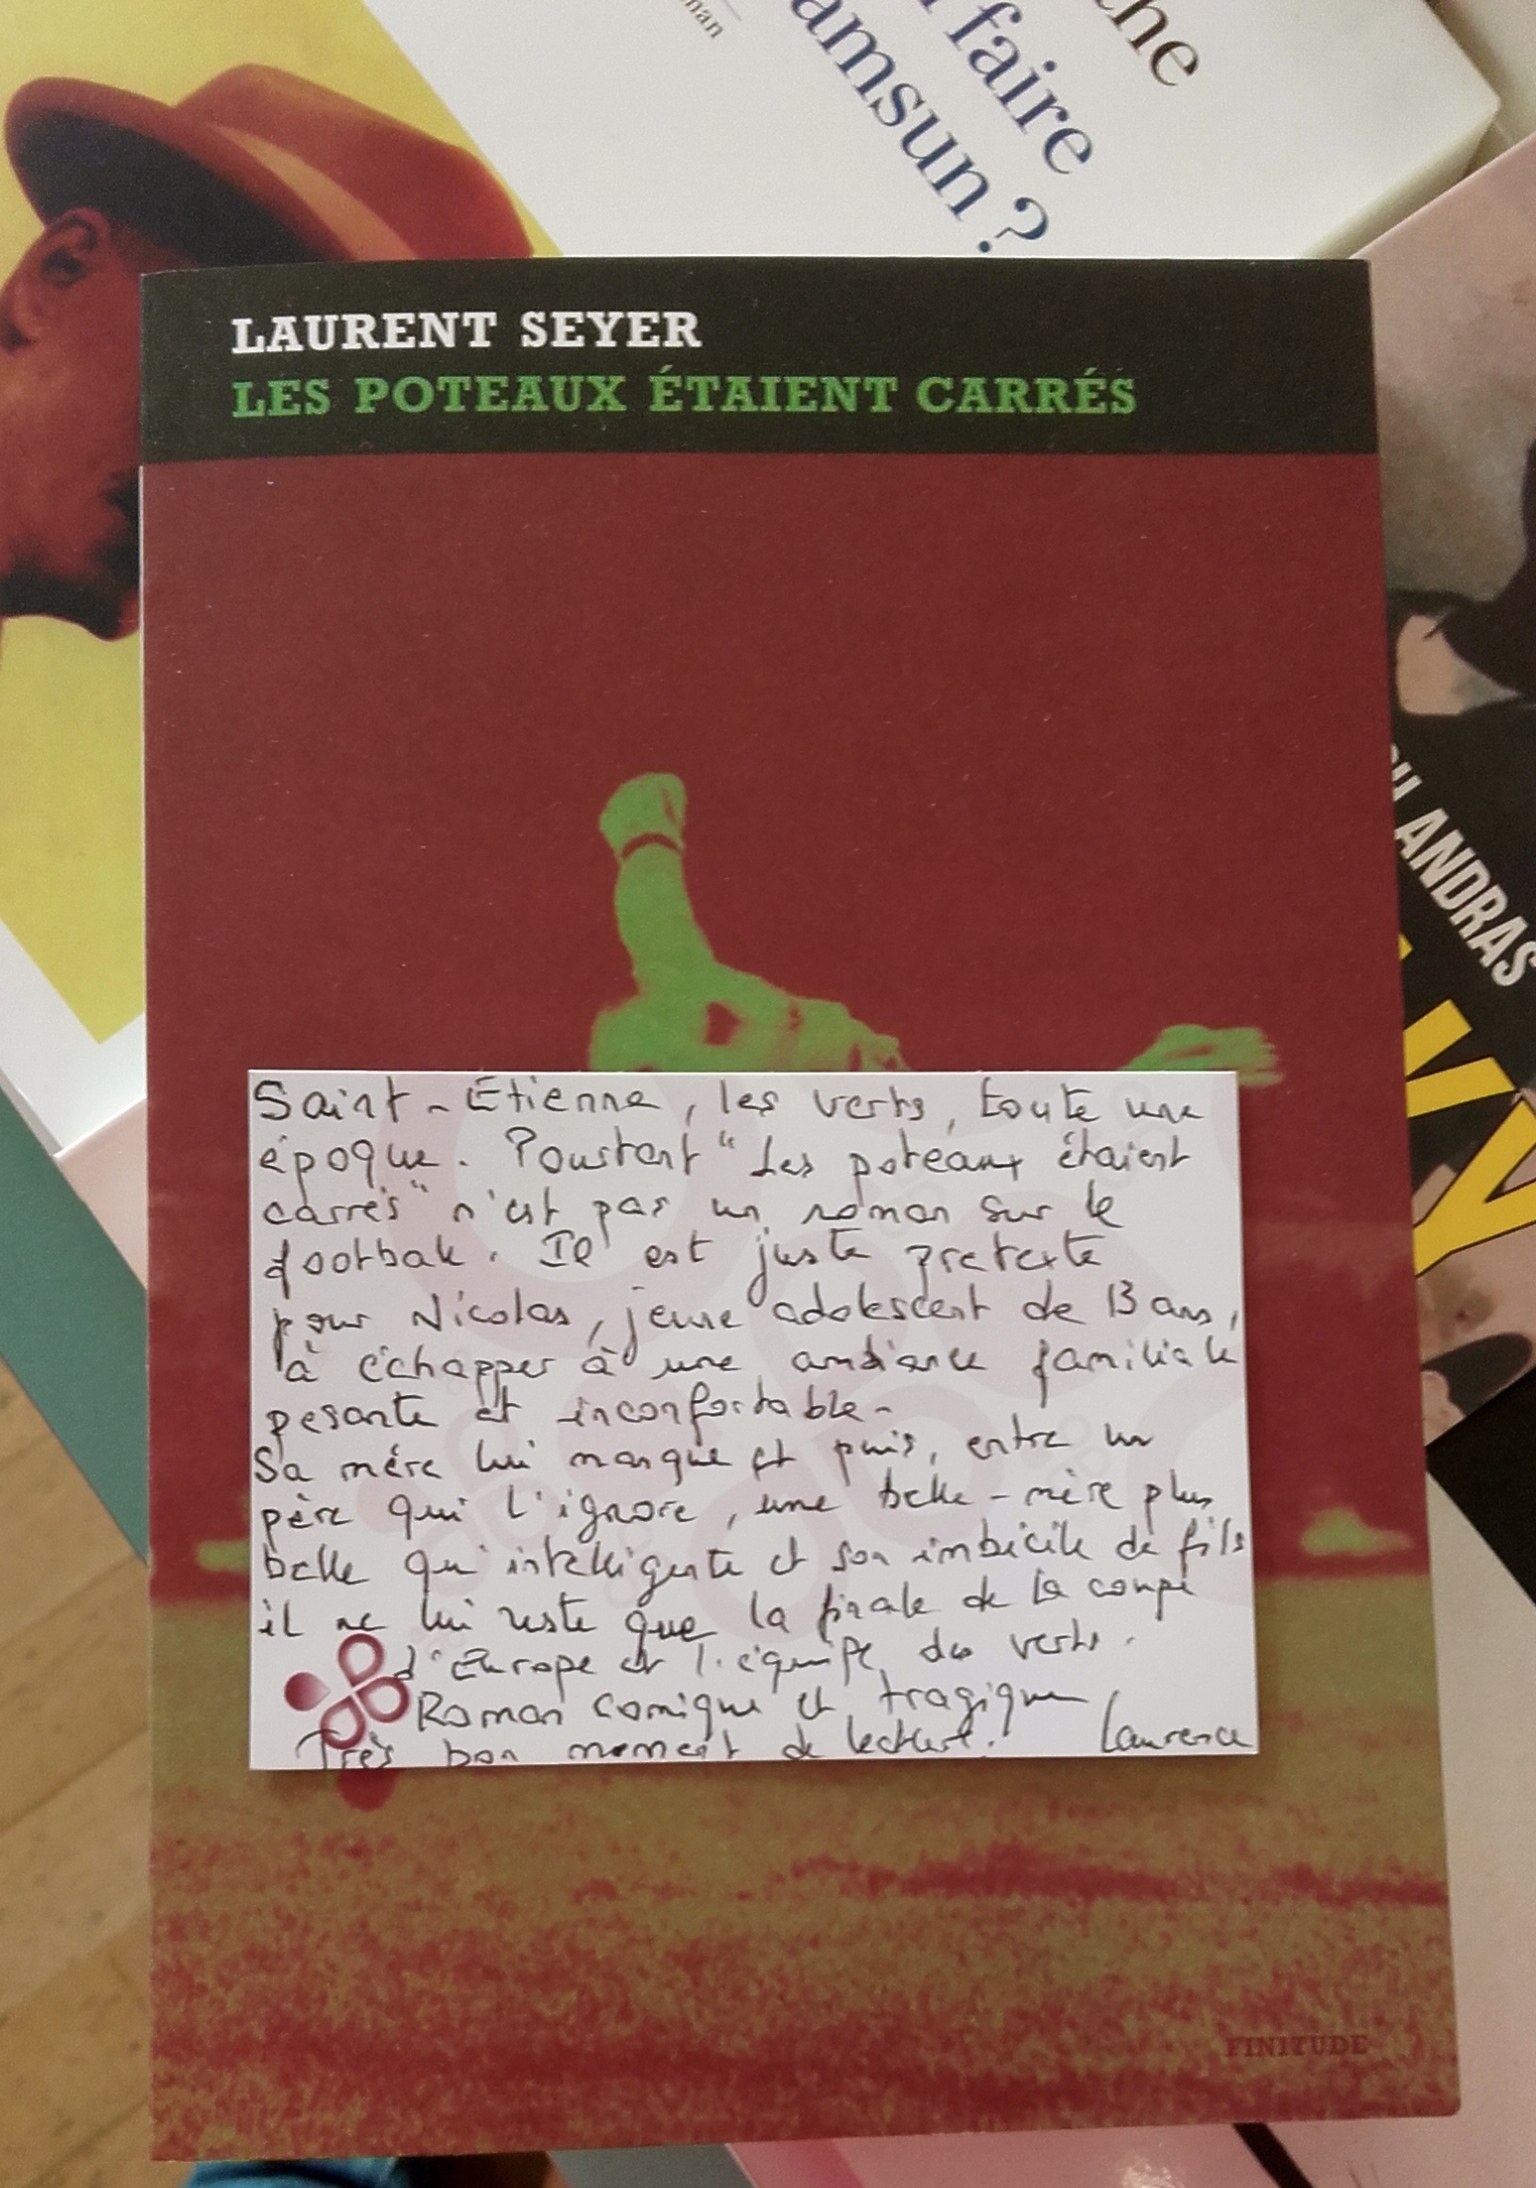 the
faire
amsun ?
man
LAURENT SEYER
LES POTEAUX ÉTAIENT CARRÉS
ANDRAS
Saint-Etienne, les verts, toute une
époque. Pourtant "Les poteaux étaient
carrés" n'est pas un roman sur le
football. Il est juste prétexte
pour Nicolas, jeune adolescent de 13 ans,
à échapper à une ambiance familiale
pesante et inconfortable-
Sa mère lui manque et puis, entre un
père qui l'ignore, une belle-mère plus
belle qu'intelligente et son imbécile de fils
il ne lui reste que la finale de la coupe
d'Europe et l'équipe des verts.
Roman comique et tragique
Très bon moment de lecture. Laurence
FINITUDE